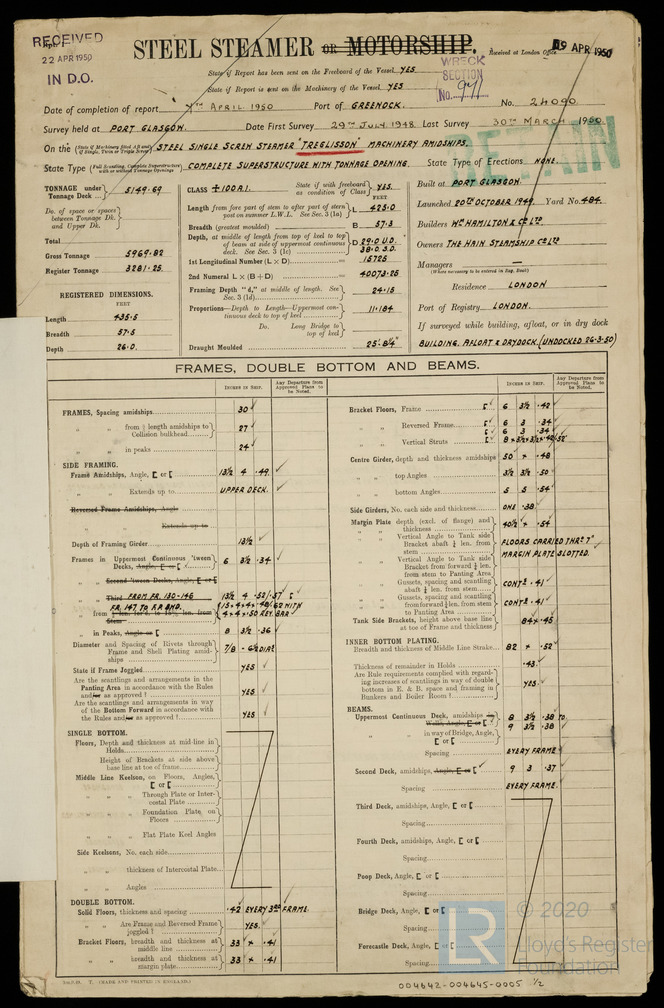 RECEIVED
22 APR 1950
IN D.O.
STEEL STEAMER OR MOTORSHIP.
Received at London Office
19 APR 1950
State if Report has been sent on the Freeboard of the Vessel YES
State if Report is sent on the Machinery of the Vessel YES
WRECK
SECTION
No.
Date of completion of report 4TH APRIL 1950 Port of GREENOCK. No. 24090
Survey held at PORT GLASGOW. Date First Survey 29TH JULY 1948 Last Survey 30TH MARCH 1950
RETAIN
On the (State if Machinery fitted Aft and if Single, Twin or Triple Screw) STEEL SINGLE SCREW STEAMER "TREGLISSON" MACHINERY AMIDSHIPS.
State Type (Full Scantling, Complete Superstructure with or without Tonnage Openings) COMPLETE SUPERSTRUCTURE WITH TONNAGE OPENING. State Type of Erections NONE.
TONNAGE under Tonnage Deck 5149.69
Do. of space or spaces between Tonnage Dk. and Upper Dk.
Total
Gross Tonnage 5969.82
Register Tonnage 3281.25
REGISTERED DIMENSIONS.
FEET
Length 435.5
Breadth 57.5
Depth 26.0
CLASS +100A1. State if with freeboard as condition of Class YES.
FEET
Length from fore part of stem to after part of stern post on summer L.W.L. See Sec. 3 (1a) L 425.0
Breadth (greatest moulded) B 57.3
Depth, at middle of length from top of keel to top of beam at side of uppermost continuous deck. See Sec. 3 (1c) D 29.0 U.D.
38.0 S.D.
1st Longitudinal Number (L × D) 15725
2nd Numeral L × (B + D) 40073.25
Framing Depth "d," at middle of length. See Sec. 3 (1d) 24.15
Proportions—Depth to Length—Uppermost continuous deck to top of keel 11.184
Do. Long Bridge to top of keel
Draught Moulded 25'.8¼"
Built at PORT GLASGOW.
Launched 20TH OCTOBER 1949. Yard No. 484.
Builders WM HAMILTON & CO LTD
Owners THE HAIN STEAMSHIP CO LTD
Managers —
(Where necessary to be entered in Reg. Book)
Residence LONDON
Port of Registry LONDON.
If surveyed while building, afloat, or in dry dock
BUILDING. AFLOAT & DRYDOCK. (UNDOCKED 26-3-50)
FRAMES, DOUBLE BOTTOM AND BEAMS.
INCHES IN SHIP.
Any Departure from Approved Plans to be Noted.
FRAMES, Spacing amidships 30 ✓
" " from ⅕ length amidships to Collision bulkhead 27 ✓
" " in peaks 24 ✓
SIDE FRAMING.
Frame Amidships, Angle, [ or [ 13½ 4 .49 ✓
" " Extends up to UPPER DECK. ✓
Reversed Frame Amidships, Angle
" " Extends up to
Depth of Framing Girder 13½ ✓
Frames in Uppermost Continuous 'tween Decks, Angle, [ or [ 6 3½ .34 ✓
" Second 'tween Decks, Angle, [ or [
" Third FROM FR. 130-146 13½ 4 .52/.57 [ ✓
FR. 147 TO F.P. BHD.
" in Peaks, Angle or [ 8 3½ .36 ✓
Diameter and Spacing of Rivets through Frame and Shell Plating amidships 7/8 - 6½ DIAS
State if Frame Joggled YES ✓
Are the scantlings and arrangements in the Panting Area in accordance with the Rules and/or as approved ? YES ✓
Are the scantlings and arrangements in way of the Bottom Forward in accordance with the Rules and/or as approved ? YES ✓
SINGLE BOTTOM.
Floors, Depth and thickness at mid-line in Holds
" Height of Brackets at side above base line at toe of frame
Middle Line Keelson, on Floors, Angles, [ or [
" " " Through Plate or Intercostal Plate
" " " Foundation Plate on Floors
" " " Flat Plate Keel Angles
Side Keelsons, No. each side
" " thickness of Intercostal Plate
" " Angles
DOUBLE BOTTOM.
Solid Floors, thickness and spacing .42 EVERY 3RD FRAME.
" " Are Frame and Reversed Frame joggled ? YES ✓
Bracket Floors, breadth and thickness at middle line 33 × .41 ✓
" " breadth and thickness at margin plate 33 × .41 ✓
INCHES IN SHIP.
Any Departure from Approved Plans to be Noted.
Bracket Floors, Frame [ 6 3½ .42 ✓
" " Reversed Frame [ 6 3 .34 ✓
6 3 .34
" " Vertical Struts [ 8 × 3½ × 3½ × .42/.52
Centre Girder, depth and thickness amidships 50 × .48 ✓
" " top Angles 3½ 3½ .50 ✓
" " bottom Angles 5 5 .54 ✓
Side Girders, No. each side and thickness ONE .38 ✓
Margin Plate depth (excl. of flange) and thickness 40½ × .54 ✓
" " Vertical Angle to Tank side Bracket abaft ¼ len. from stem FLOORS CARRIED THRO' 7"
MARGIN PLATE SLOTTED.
" " Vertical Angle to Tank side Bracket from forward ¼ len. from stem to Panting Area
" " Gussets, spacing and scantling abaft ¼ len. from stem CONTS .41 ✓
" " Gussets, spacing and scantling from forward ¼ len. from stem to Panting Area CONTS .41 ✓
Tank Side Brackets, height above base line at toe of Frame and thickness 84 × .45 ✓
INNER BOTTOM PLATING.
Breadth and thickness of Middle Line Strake 82 × .52 ✓
Thickness of remainder in Holds .43 ✓
Are Rule requirements complied with regarding increases of scantlings in way of double bottom in E. & B. space and framing in Bunkers and Boiler Room ? YES ✓
BEAMS.
Uppermost Continuous Deck, amidships 8 3½ .38 TO
9 3½ .38
" " in way of Bridge, Angle, [ or [
Spacing EVERY FRAME ✓
Second Deck, amidships, Angle, [ or [ ✓ 9 3 .37 ✓
Spacing EVERY FRAME. ✓
Third Deck, amidships, Angle, [ or [
Spacing
Fourth Deck, amidships, Angle, [ or [
Spacing
Poop Deck, Angle, [ or [
Spacing
Bridge Deck, Angle, [ or [
Spacing
Forecastle Deck, Angle, [ or [
Spacing
(MADE AND PRINTED IN ENGLAND.)
LR
© 2020
Lloyd's Register
Foundation
004642-004645-0005 1/2